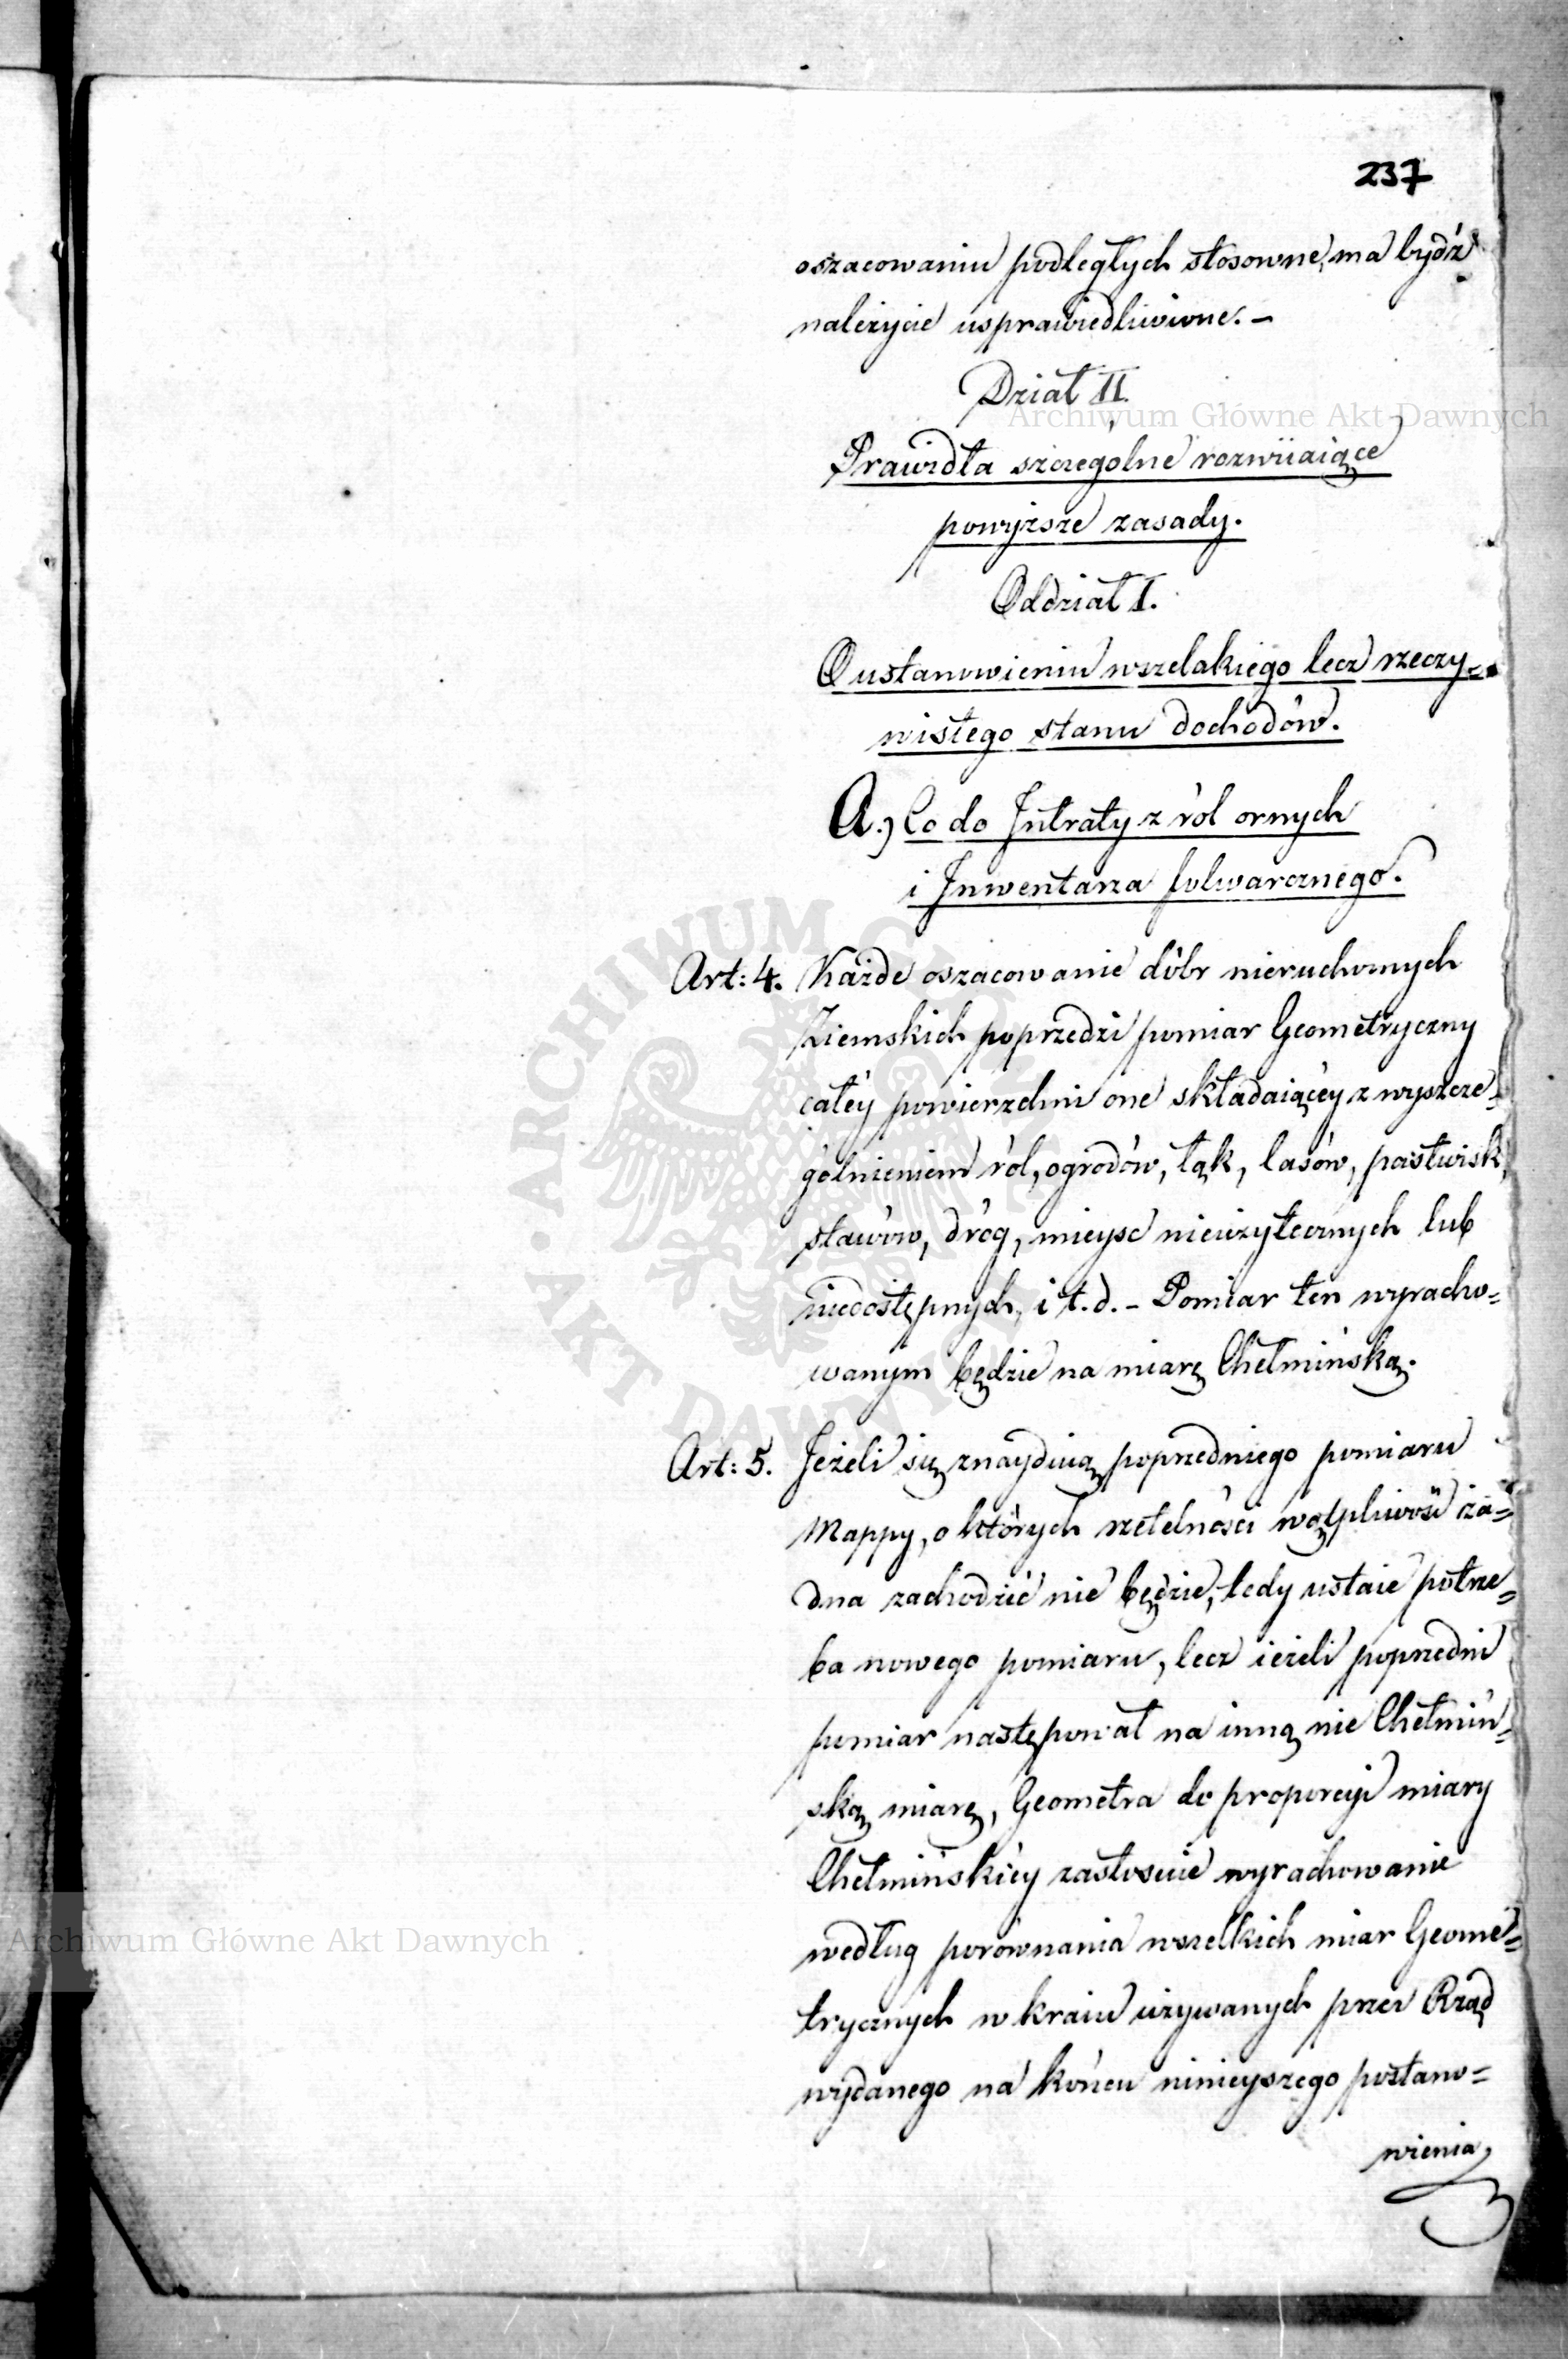 237
oszacowaniu podległych stosowne, ma bydź
należycie usprawiedliwione. –
Dział II.
Archiwum Główne Akt Dawnych
Prawidła szczególne rozwiiaiące
powyższe zasady.
Oddział I.
O ustanowieniu wszelakiego lecz rzeczy-
wistego stanu dochodów.
A.) Co do Intraty z ról ornych
i Inwentarza folwarcznego.
Art: 4. Każde oszacowanie dóbr nieruchomych
Ziemskich poprzedzi pomiar Geometryczny
całéy powierzchni one składaiącéy z wyszcze=
gólnieniem ról, ogrodów, łąk, lasów, pastwisk,
stawów, dróg, mieysc nieużytecznych lub
niedostępnych, i t. d. – Pomiar ten wyracho=
wanym będzie na miarę Chełmińską.
Art: 5. Jeżeli się znayduią poprzedniego pomiaru
Mappy, o których rzetelności wątpliwość ża=
dna zachodzić nie będzie, tedy ustaie potrze=
ba nowego pomiaru, lecz ieżeli poprzedni
pomiar następował na inną nie Chełmiń=
ską miarę, Geometra do proporcyi miary
Chełmińskiéy zastosuie wyrachowanie
według porównania wszelkich miar Geome=
trycznych w kraiu używanych przez Rząd
wydanego na końcu ninieyszego postano=
wienia
Archiwum Główne Akt Dawnych
ARCHIWUM GŁÓWNE AKT DAWNYCH